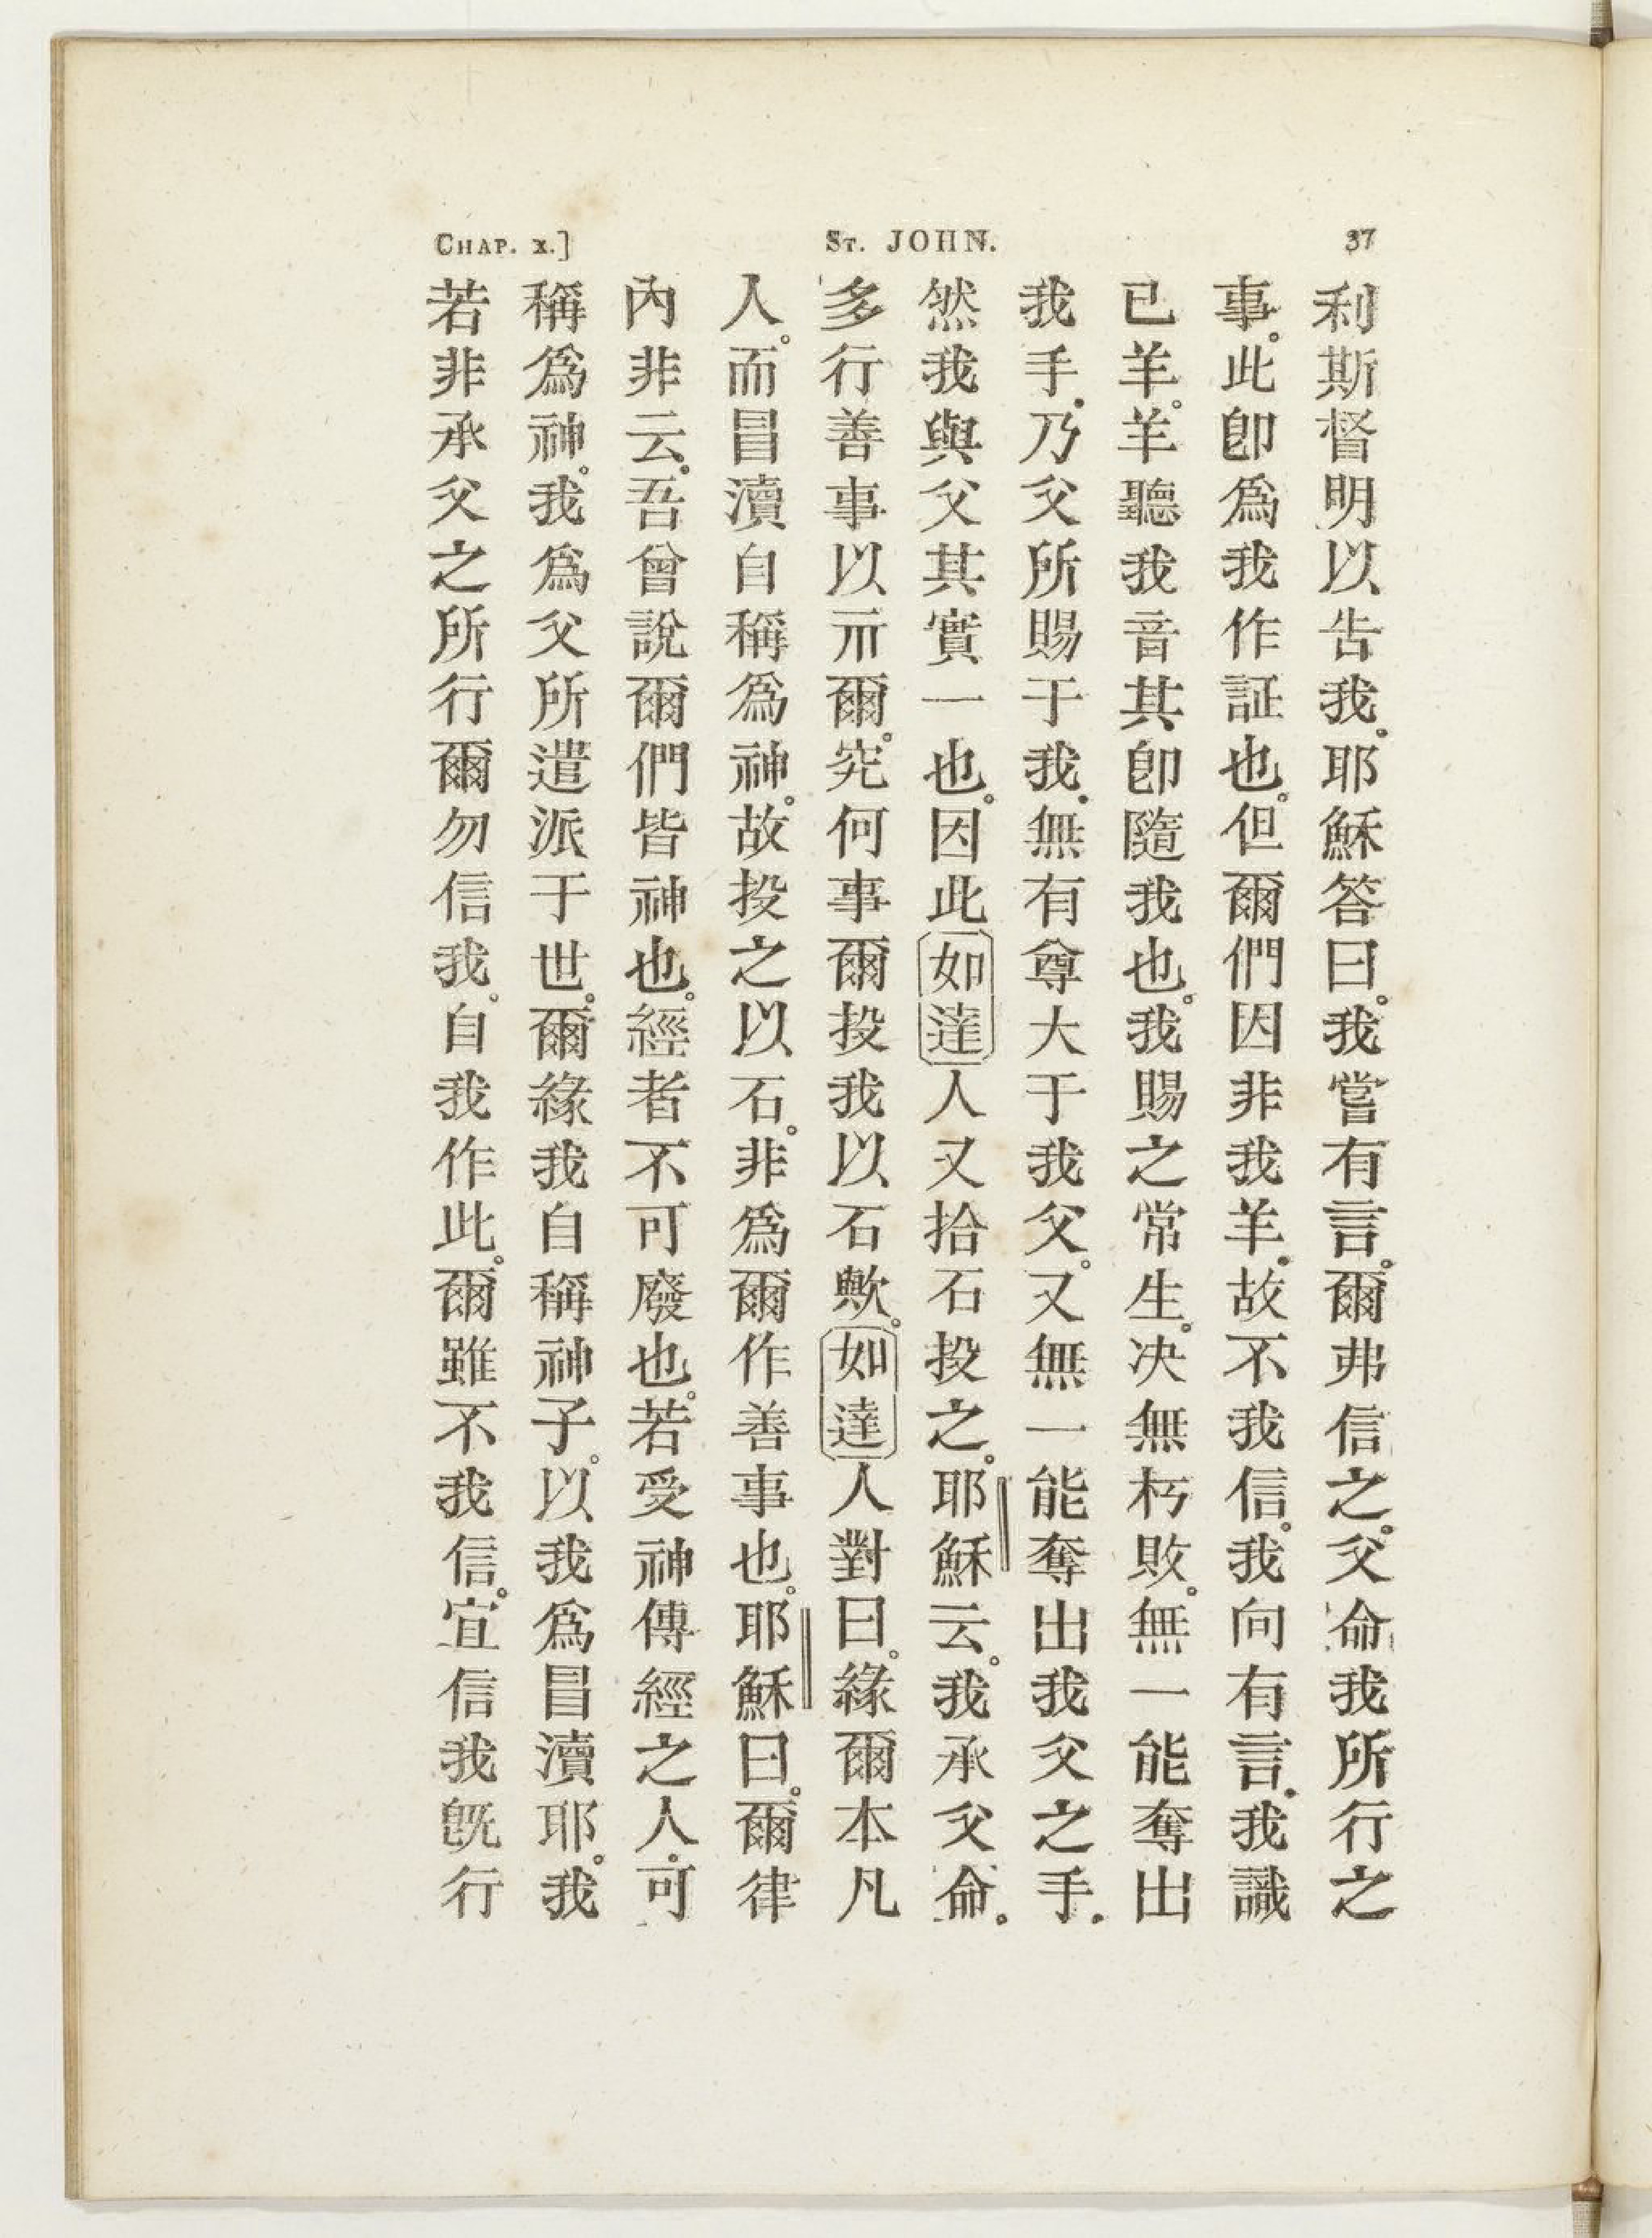 CHAP. X.] ST. JOHN. 37
利斯督明以告我。耶穌答曰。我嘗有言。爾弗信之。父命我所行之
事。此卽爲我作証也。但爾們因非我羊。故不我信。我向有言。我識
已羊。羊聽我音其卽隨我也。我賜之常生。决無朽敗。無一能奪出
我手。乃父所賜于我。無有尊大于我父。又無一能奪出我父之手。
然我與父其實一也。因此如達人又拾石投之。耶穌云。我承父命。
多行善事以示爾。究何事爾投我以石歟。如達人對曰。緣爾本凡
人。而冒瀆自稱爲神。故投之以石。非爲爾作善事也。耶穌曰。爾律
內非云。吾曾說爾們皆神也。經者不可廢也。若受神傳經之人。可
稱爲神。我爲父所遣派于世。爾緣我自稱神子。以我爲冒瀆耶。我
若非承父之所行爾勿信我。自我作此。爾雖不我信。宜信我旣行